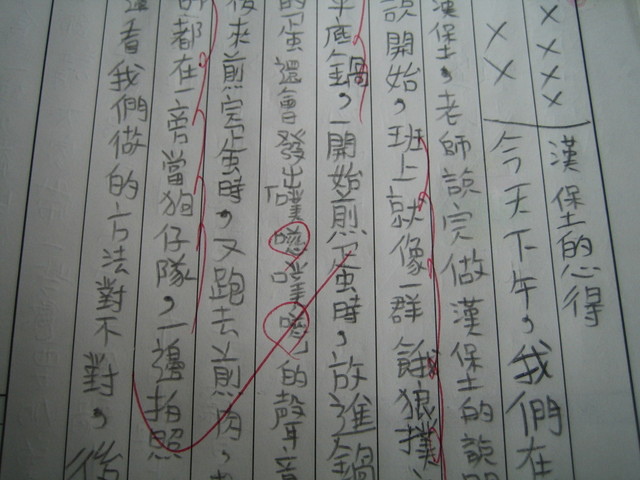 漢堡的心得
××××
××
今天下午，我們在
漢堡，老師說完做漢堡的說明
說開始，班上就像一群餓狼撲
平底鍋，一開始煎蛋時，放進鍋
的蛋還會發出「噗噁噗噁」的聲音
後來煎完蛋時，又跑去煎肉，
師都在一旁當狗仔隊，一邊拍照
邊看我們做的方法對不對，後